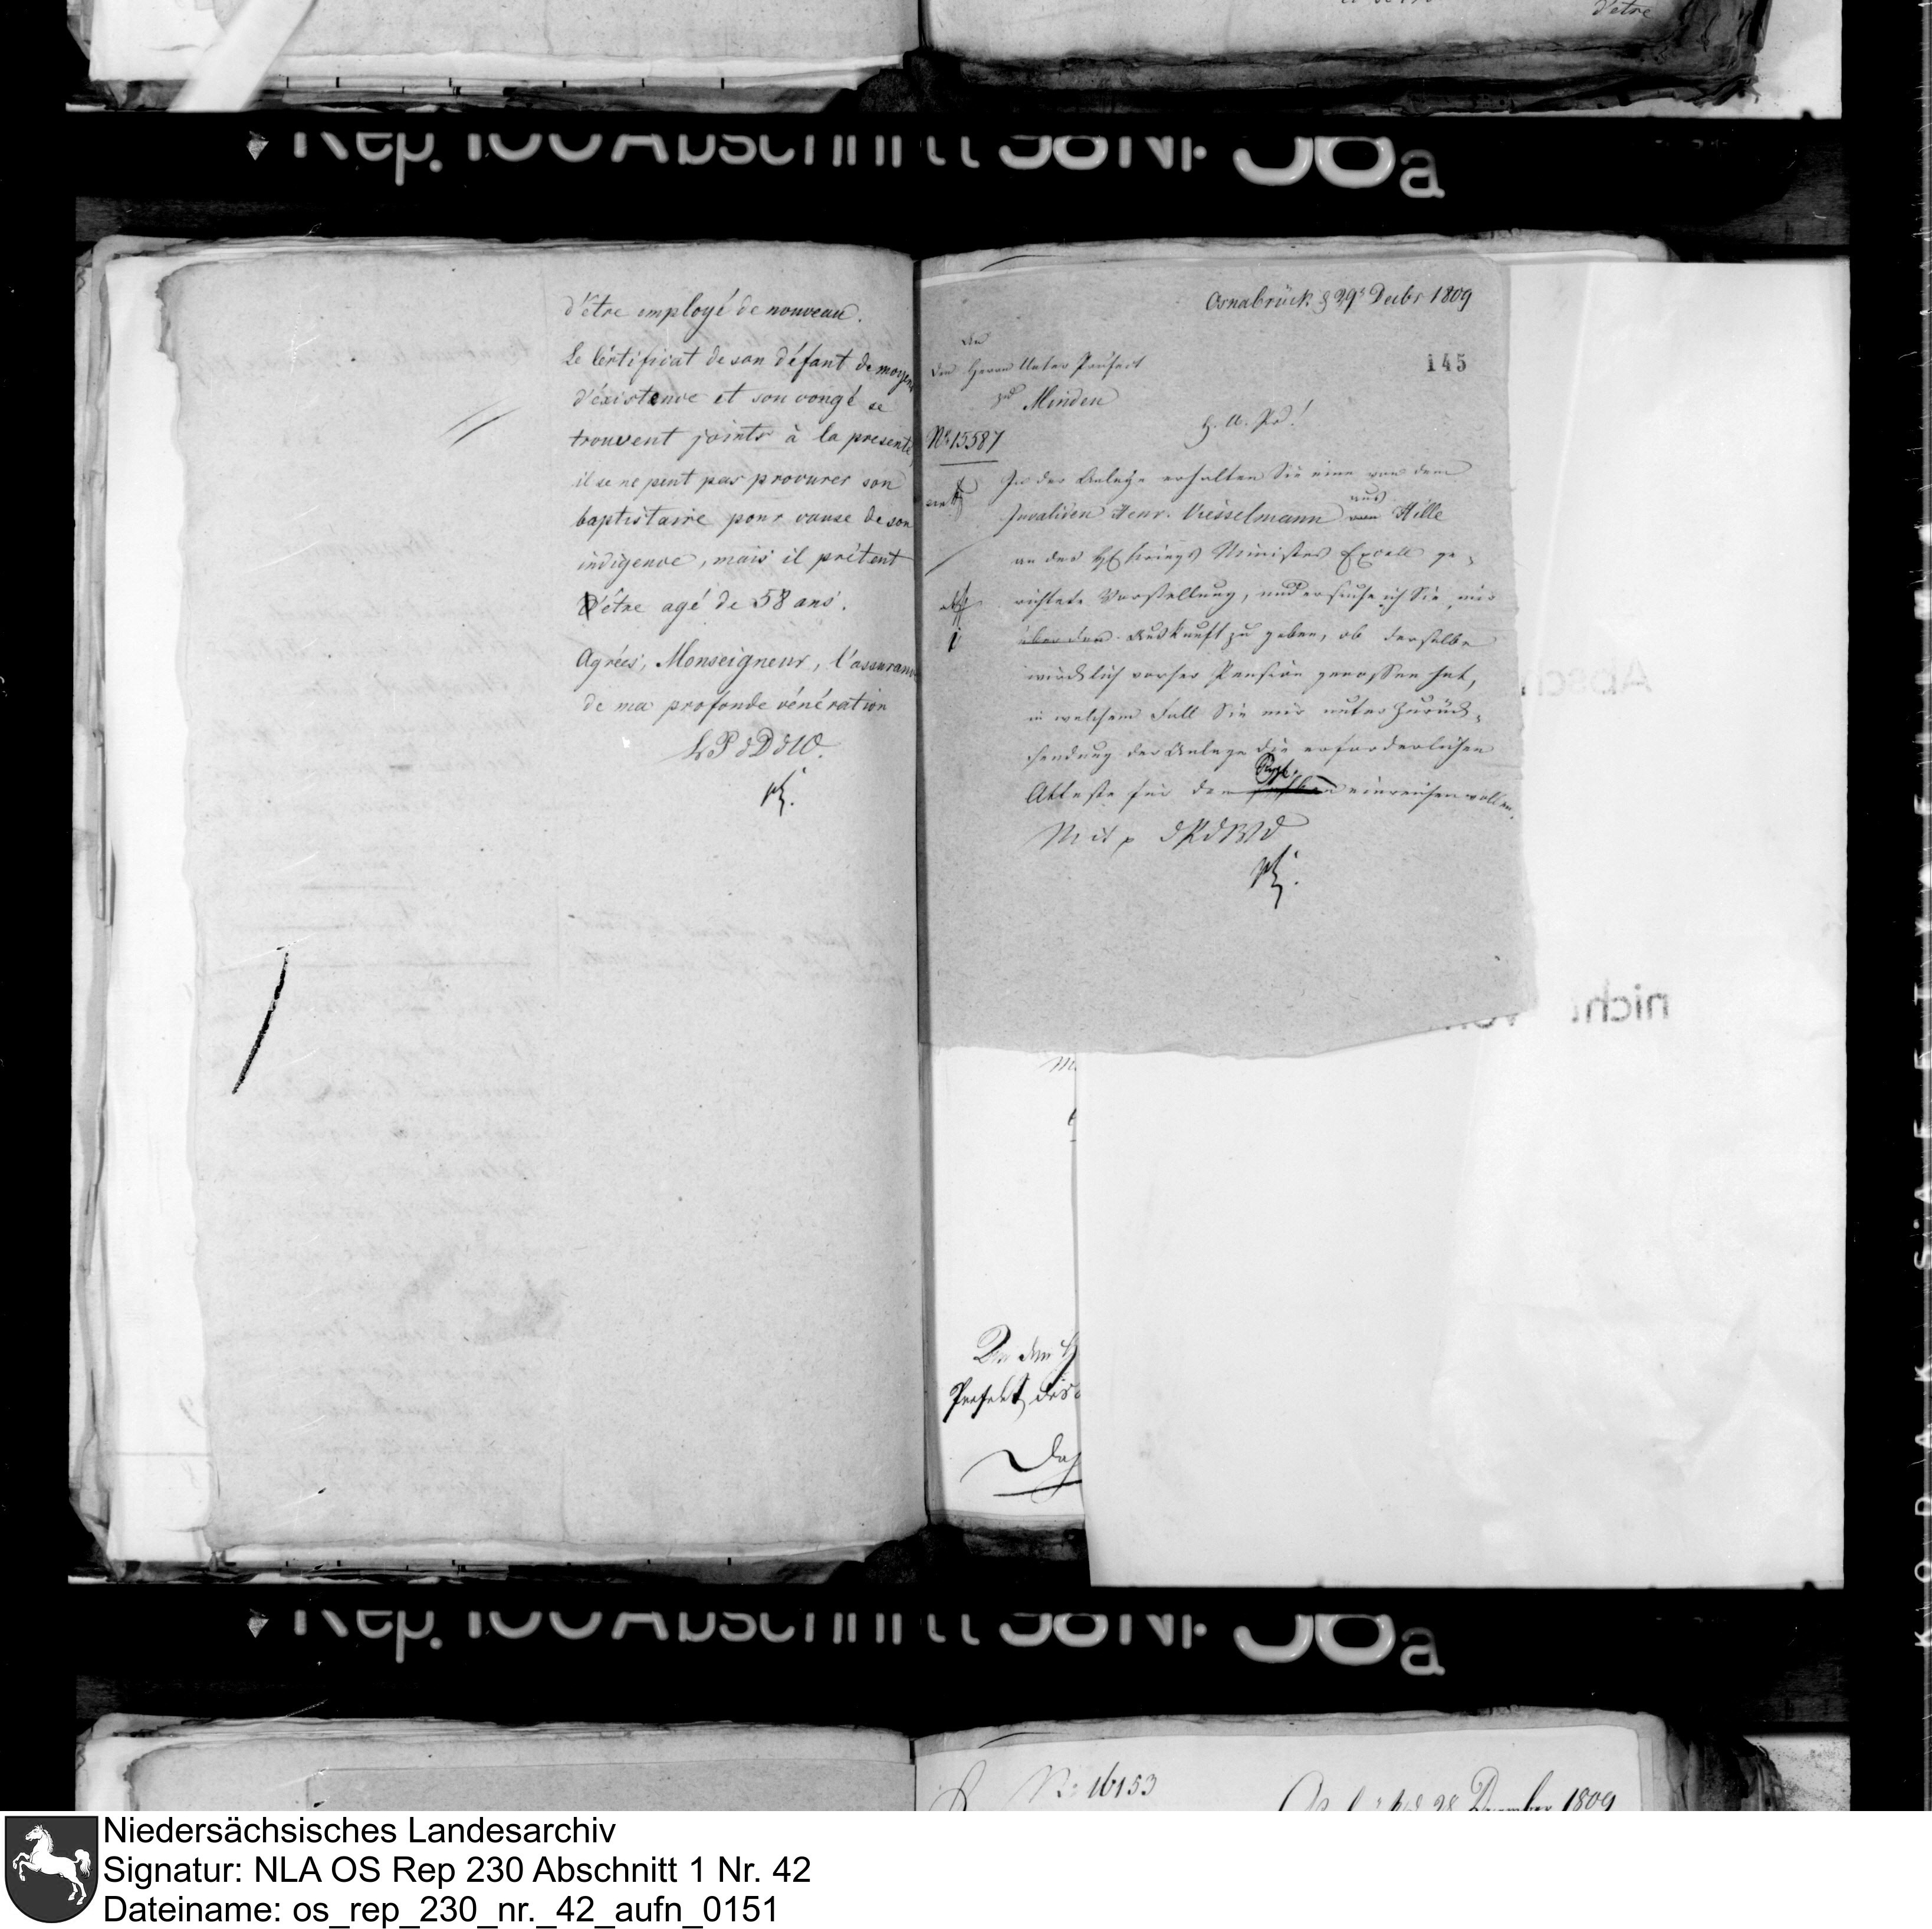 d'etre
Rep. 100 Abschnitt 58 Nr. 36a
d'être employé de nouveau.
Le Cértificat de son défant de moyens
d'éxistence et son congé se
trouvent joints à la presente,
il se ne peut pas procurer son
baptistaire pour cause de son
indigence, mais il prétent
d'être agé de 58 ans.
Agrées, Monseigneur, l'assurance
de ma profonde vénération
L P d D d W.
Osnabrück d 29t Decbr 1809
145
An
den Herrn Unter Präfect
zu Minden
H. U. Pr!
No 15587
In der Anlage erhalten Sie eine von dem
Invaliden Henr. Viesselmann aus Hille
an des Kriegs Ministers Excell ge-
richtete Vorstellung, und ersuche ich Sie mir
über den Auskunft zu geben, ob derselbe
wircklich vorher Pension genossen hat,
in welchem Fall Sie mir unter Zurück-
sendung der Anlage die erforderlichen
Atteste für den einreichen wollen.
Mit p d P d W D
An den H
Prefekt des
Das
No 16153
28 December 1809
KODAK SAFETY
Niedersächsisches Landesarchiv
Signatur: NLA OS Rep 230 Abschnitt 1 Nr. 42
Dateiname: os_rep_230_nr._42_aufn_0151